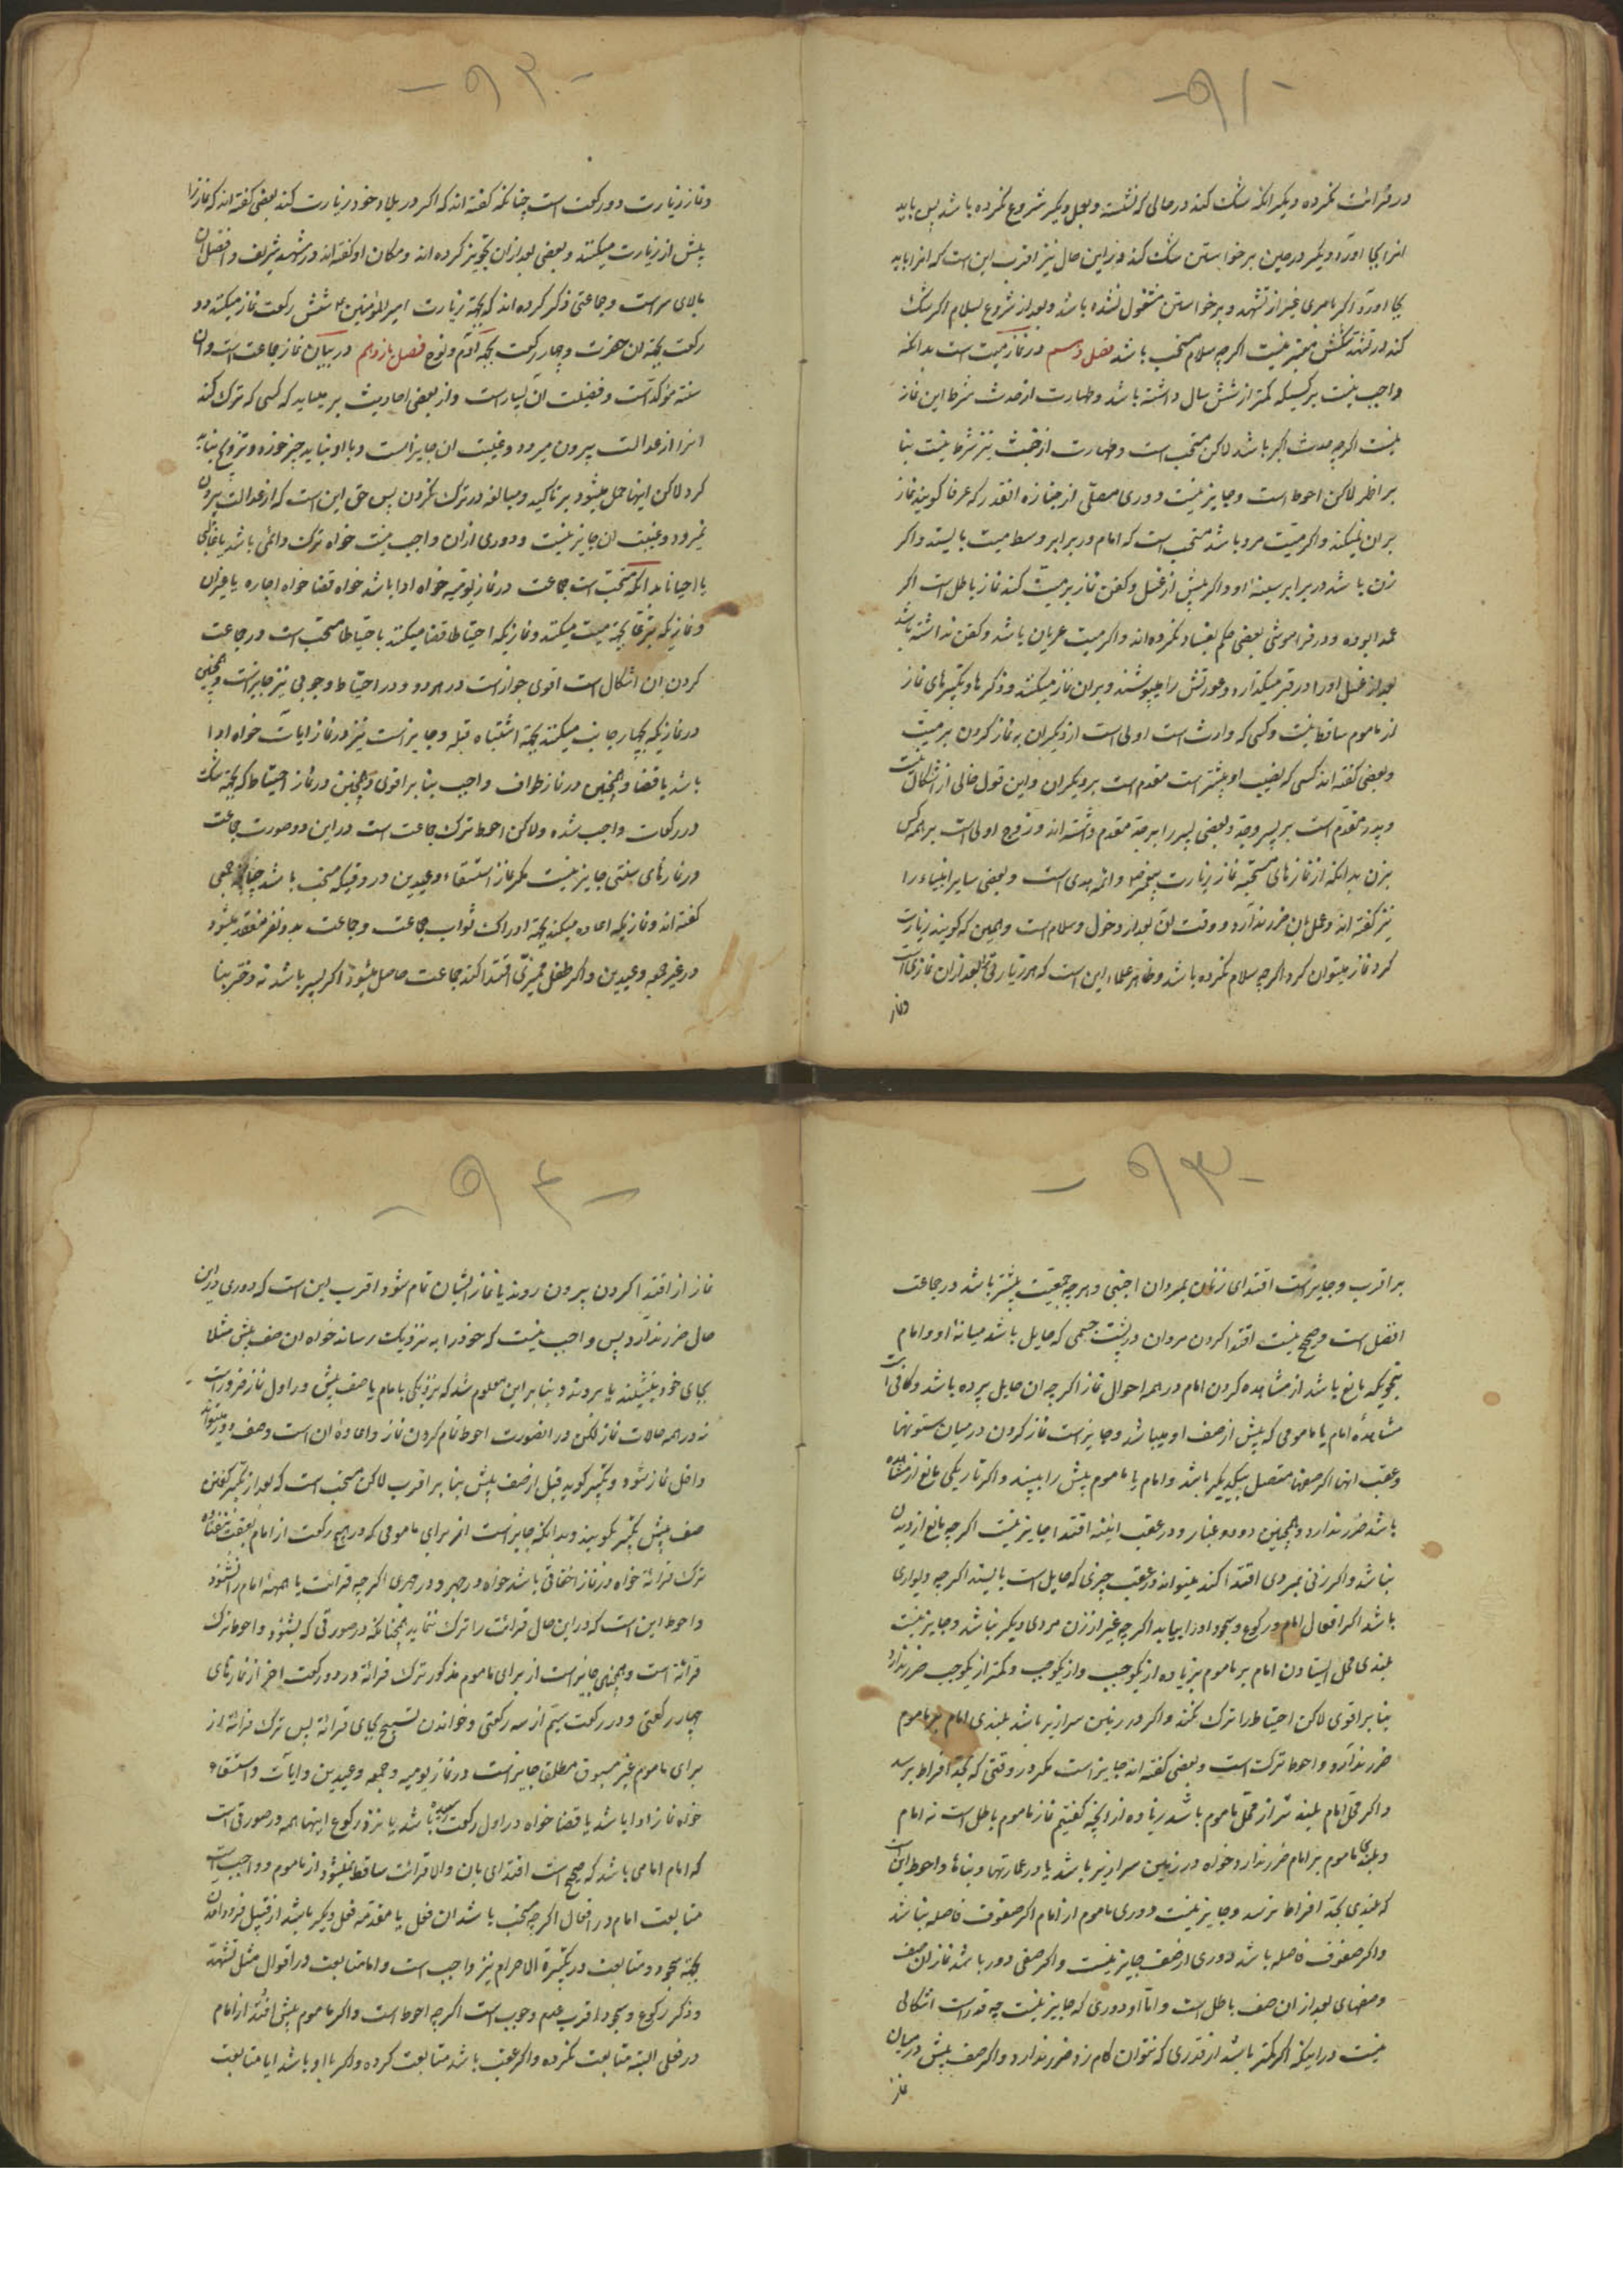 -٩١-
در قرائت نکرده و دیکر انکه شک کند در حالی که نشسته و بعمل دیکر شروع نکرده باشد پس باید
انرا بجا اورد و دیکر در حین برخواستن شک کند در این حال نیز اقرب این است که انرا باید
بجا اورد اکر بامری غیر از تشهد و برخواستن مشغول نشده باشد و بعد از شروع بسلام اکر شک
کند در تشهد شکش معتبر نیست اکر چه سلام مستحب باشد فصل دهم در نماز میت است بدانکه
واجب نیست بر کسیکه کمتر از شش سال داشته باشد و طهارت از حدث شرط این نماز
نیست اکر چه حدث اکبر باشد لاکن مستحب است و طهارت از خبث نیز شرط نیست بنا
بر اظهر لاکن احوط است و جایز نیست دوری مصلّی از جنازه انقدر که عرفا کویند نماز
بر ان نمیکند و اکر میّت مرد باشد مستحب است که امام در برابر وسط میت بایستد و اکر
زن باشد در برابر سینهٔ او و اکر پیش از غسل و کفن نماز بر میّت کند نماز باطل است اکر
عمدا بوده و در فراموشی بعضی حکم بفساد نکرده اند و اکر میت عریان باشد و کفن نداشته باشد
بعد از غسل او را در قبر میکذارد و عورتش را میپوشند و بر ان نماز میکنند و ذکرها و تکبیرهای نماز
از ماموم ساقط نیست و کسی که وارث است اولی است از دیکران به نماز کردن بر میّت
و بعضی کفته اند کسی که نصیب او بیشتر است مقدم است بر دیکران و این قول خالی از اشکال نیست
و پدر مقدم است بر پسر و جدّ و بعضی پسر را بر جد مقدم داشته اند و زوج اولی است بر همه کس
بزن بدانکه از نمازهای مستحبّه نماز زیارت پیغمبر ص و ائمه هدی است و بعضی سایر انبیاء را
نیز کفته اند و عمل بان ضرر ندارد و وقت ان بعد از دخول و سلام است و همین که کویند زیارت
کرد نماز میتوان کرد اکر چه سلام نکرده باشد و ظاهر علماء این است که هر زیارتی بعد از ان نمازی است
ونماز
-٩٢-
ونماز زیارت دو رکعت است چنانکه کفته اند که اکر در بلاد خود زیارت کند بعضی کفته اند که نماز را
پیش از زیارت میکنند و بعضی بعد از ان تجویز کرده اند و مکان او کفته اند در مشهد شریف و افضل ان
بالای سر است و جماعتی ذکر کرده اند که بجهة زیارت امیر المؤمنین ع شش رکعت نماز میکنند دو
رکعت بجهة ان حضرت و چهار رکعت بجهة آدم و نوح فصل یازدهم در بیان نماز جماعت است و ان
سنته مؤکده است و فضیلت ان بسیار است و از بعضی احادیث بر میاید که کسی که ترک کند
انرا از عدالت بیرون میرود و غیبت ان جایز است و با او نباید چیز خورد و تزویج نباید
کرد لاکن اینها حمل میشود بر تاکید و مبالغه در ترک نکردن پس حق این است که از عدالت بیرون
نمیرود و غیبت ان جایز نیست و دوری از ان واجب نیست خواه ترک دائمی باشد یا غالبی
یا احیانا بدانکه مستحب است جماعت در نماز یومیّه خواه ادا باشد خواه قضا خواه اجاره یا غیر ان
و نمازیکه تبرّعا بجهة میت میکنند و نمازیکه احتیاطا قضا میکنند باحتیاط مستحب است در جماعت
کردن ان اشکال است اقوی جواز است در هر دو و در احتیاط وجوبی نیز جایز است و همچنین
در نمازیکه بچهار جانب میکنند بجهة اشتباه قبله و جایز است نیز در نماز ایات خواه ادا
باشد یا قضا و همچنین در نماز طواف واجب بنا بر اقوی و همچنین در نماز احتیاط که بجهة شک
در رکعات واجب شده ولاکن احوط ترک جماعت است در این دو صورت جماعت
در نمازهای سنتی جایز نیست مکر نماز استسقاء و عیدین در وقتیکه مستحب باشد چنانکه جمعی
کفته اند و نمازیکه اعاده میکند بجهة ادراک ثواب جماعت و جماعت بدو نفر منعقد میشود
در غیر جمعه و عیدین و اکر طفل ممیزی اقتدا کند جماعت حاصل میشود اکر پسر باشد نه دختر بنا
-٩٣-
بر اقرب و جایز است اقتدای زنان بمردان اجنبی و هر چه جمعیّت بیشتر باشد در جماعت
افضل است و صحیح نیست اقتدا کردن مردان در پشت جسمی که حایل باشد میانه او و امام
بنحویکه مانع باشد از مشاهده کردن امام در همه احوال نماز اکر چه ان حایل پرده باشد و کافی است
مشاهدهٔ امام یا مامومی که پیش از صف او میباشد و جایز است نماز کردن در میان ستونها
و عقب انها اکر صفها متصل بیکدیکر باشد و امام یا ماموم پیش را ببیند و اکر تاریکی مانع از مشاهده
باشد ضرر ندارد و همچنین دود و غبار و در عقب ائینه اقتدا جایز نیست اکر چه مانع از دیدن
نباشد و اکر زنی بمردی اقتدا کند میتواند در عقب چیزی که حایل است بایستد اکر چه دیواری
باشد اکر افعال امام در رکوع و سجود او را بیابد اکر چه غیر از زن مردی دیکر نباشد و جایز نیست
بلندی محل ایستادن امام بر ماموم بزیاده از یکوجب و از یکوجب و کمتر از یکوجب ضرر ندارد
بنا بر اقوی لاکن احتیاط را ترک نکند و اکر در زمین سرازیر باشد بلندی امام بر ماموم
ضرر ندارد و احوط ترک است و بعضی کفته اند جایز است مکر در وقتی که بحد افراط برسد
و اکر محل امام بلند تر از محل ماموم باشد زیاده از انچه کفتیم نماز ماموم باطل است نه امام
و بلندی ماموم بر امام ضرر ندارد خواه در زمین سرازیر باشد یا در عمارتها و بناها و احوط این است
که بلندی بحد افراط نرسد و جایز نیست دوری ماموم از امام اکر صفوف فاصله نباشد
و اکر صفوف فاصله باشد دوری از صف جایز نیست و اکر صفی دور باشد نماز ان صف
و صفهای بعد از ان صف باطل است و اما دوری که جایز نیست چه قدر است اشکالی
نیست در اینکه اکر کمتر باشد از قدری که بتوان کام زد ضرر ندارد و اکر صف پیش در میان
نماز
-٩٤-
نماز از اقتدا کردن بیرون روند یا نماز ایشان تمام شود اقرب این است که دوری در این
حال ضرر ندارد پس واجب نیست که خود را به نزدیک رساند خواه ان صف پیش مثلا
بجای خود بنشینند یا بروند و بنا بر این معلوم شد که نزدیکی بامام یا صف پیش در اول نماز ضرور است
نه در همه حالات نماز لکن در انصورت احوط تمام کردن نماز و اعادهٔ ان است و صف دویم میتواند
داخل نماز شود و تکبیر کوید قبل از صف پیش بنا بر اقرب لاکن مستحب است که بعد از تکبیر کفتن
صف پیش تکبیر بکویند و بدانکه جایز است از برای مامومی که در هیچ رکعت از امام بعقب نیفتاده
ترک قرائة خواه در نماز اخفاتی باشد خواه در جهر و در جهری اکر چه قرائت یا همهمهٔ امام را نشنود
و احوط این است که در این حال قرائت را ترک ننماید همچنانکه در صورتی که بشنود و احوط ترک
قرائة است و همچنین جایز است از برای ماموم مذکور ترک قرائة در دو رکعت اخر از نمازهای
چهار رکعتی و در رکعت سیم از سه رکعتی و خواندن تسبیح بجای قرائة پس ترک قرائة از
برای ماموم غیر مسبوق مطلقا جایز است در نماز یومیه و جمعه و عیدین و ایات و استسقاء
خواه نماز ادا باشد یا قضا خواه در اول رکعت رسیده باشد یا نزد رکوع اینها همه در صورتی است
که امام امامی باشد که صحیح است اقتدای بان والا قرائت ساقط نمیشود از ماموم و واجب است
متابعت امام در افعال اکر چه مستحب باشد ان فعل یا مقدمه فعل دیکر باشد از قبیل فرود امدن
بجهة سجود و متابعت در تکبیرة الاحرام نیز واجب است و اما متابعت در اقوال مثل تشهد
و ذکر رکوع و سجود اقرب عدم وجوب است اکر چه احوط است و اکر ماموم پیش افتد از امام
در فعلی البته متابعت نکرده و اکر عقب باشد متابعت کرده و اکر با او باشد ایا متابعت